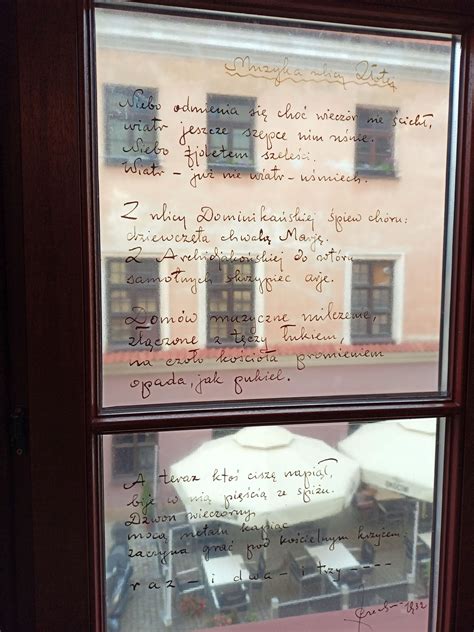 Muzyka ulicy Złotej
Niebo odmienia się choć wieczór nie ścichł,
wiatr jeszcze szepce nim uśnie.
Niebo fjoletem szeleści.
Wiatr – już nie wiatr – uśmiech.
Z ulicy Dominikańskiej śpiew chóru:
dziewczęta chwalą Marję.
Z Archidjakońskiej do wtóru
samotnych skrzypiec arje.
Domów muzyczne milczenie,
złączone z tęczy łukiem,
na czoło kościoła promieniem
opada, jak pukiel.
A teraz ktoś ciszę napiął,
bije w nią pięścią ze spiżu.
Dzwon wieczorny,
mocą metalu kapiąc
zaczyna grać pod kościelnym krzyżem:
raz – i dwa – i trzy – – – –
1932